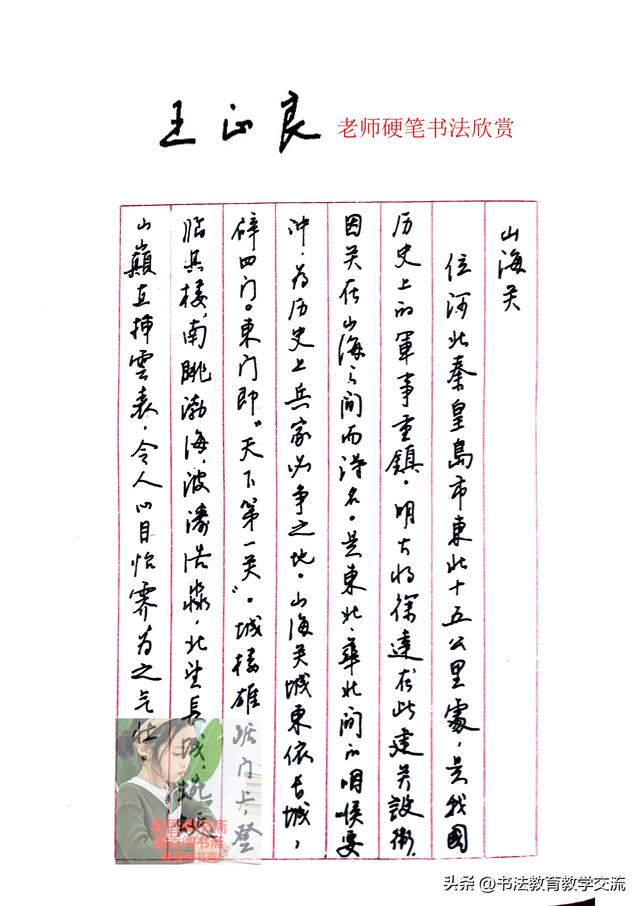 王正良 老师硬笔书法欣赏
山海关
位河北秦皇岛市東北十五公里處，是我國
历史上的軍事重鎮。明大将徐達在此建关設衛，
因关在山海之间而得名。是東北、華北间的咽喉要
冲，为历史上兵家必争之地。山海关城東依长城，
辟四门。東门即“天下第一关”。城楼雄踞门上，登
临其楼，南眺渤海，波濤浩淼，北望長城，蜿蜒
山巔直插雲表，令人心目怡霁为之气壮
头条 @书法教育教学交流